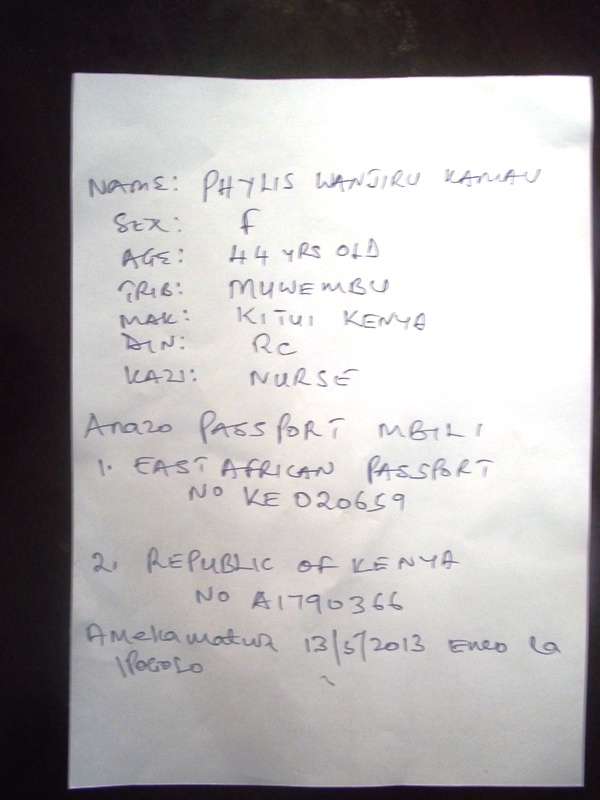 NAME: PHYLIS WANJIRU KAMAU
SEX: f
AGE: 44 YRS OLD
TRIB: MUWEMBU
MAK: KITUI KENYA
DIN: RC
KAZI: NURSE
Anazo PASSPORT MBILI
1. EAST AFRICAN PASSPORT
NO KE 020659
2. REPUBLIC OF KENYA
NO A1790366
Amekamatwa 13/5/2013 Eneo la
IPOGOLO